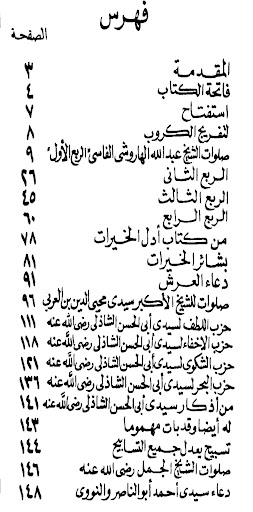 فهرس
الصفحة
المقدمة ٣
فاتحة الكتاب ٤
استفتاح ٧
لتفريج الكروب ٨
صلوات الشيخ عبد الله الهاروشي الفاسي "الربع الأول" ٩
الربع الثاني ٢٦
الربع الثالث ٤٥
الربع الرابع ٦٠
من كتاب أدل الخيرات ٧٨
بشائر الخيرات ٨١
دعاء العرش ٩١
صلوات للشيخ الأكبر سيدى محيى الدين بن العربي ٩٦
حزب اللطف لسيدى أبى الحسن الشاذلى رضى الله عنه ١١١
حزب الإخفاء لسيدى أبى الحسن الشاذلى رضى الله عنه ١١٨
حزب الشكوى لسيدى أبى الحسن الشاذلى رضى الله عنه ١٢١
حزب البحر لسيدى أبى الحسن الشاذلى رضى الله عنه ١٣٦
من أذكار سيدى أبى الحسن الشاذلى رضى الله عنه ١٤١
له أيضا وقد بات مهموما ١٤٣
تسبيح يعدل جميع التسابيح ١٤٤
صلوات الشيخ الجمل رضى الله عنه ١٤٦
دعاء سيدى أحمد أبو الناصر والنووى ١٤٨